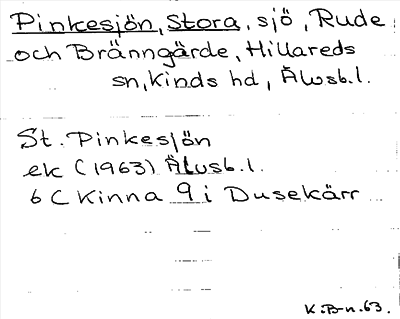 Pinkesjön, Stora, sjö, Rude
och Bränngärde, Hillareds
sn, Kinds hd, Älvsb. l.
St. Pinkesjön
ek (1963) Älvsb. l.
6 C Kinna 9 i Dusekärr
K.B-n. 63.